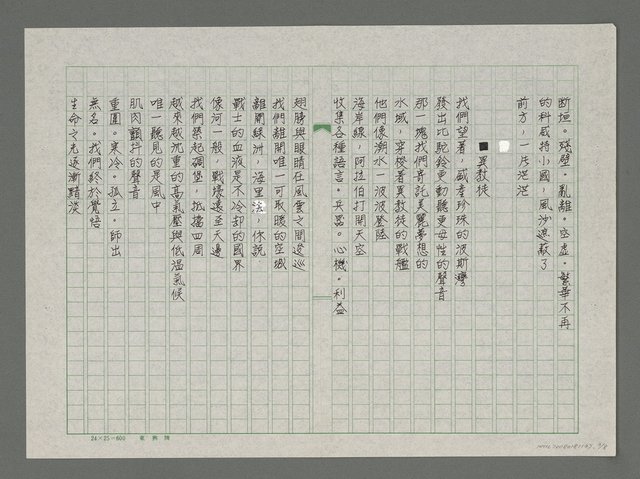 断垣。殘壁。亂離。空虛。繁華不再
的科威特小國，風沙遮蔽了
前方，一片茫茫
□
■異教徒
我們望著，盛產珍珠的波斯灣
發出比駝鈴更動聽更母性的聲音
那一塊我們寄託美麗夢想的
水域，穿梭著異教徒的戰艦
他們像潮水一波波登陸
海岸線，阿拉伯打開天空
收集各種語言。兵器。心機。利益
翅膀與眼睛在風雲之間逡巡
我們離開唯一可取暖的空城
離開綠洲，海里法，你說
戰士的血液是不冷卻的國界
像河一般，戰壕遠至天邊
我們築起碉堡，抵擋四周
越來越沉重的高氣壓與低溫氣候
唯一聽見的是風中
肌肉顫抖的聲音
重圍。寒冷。孤立。師出
無名。我們終於覺悟
生命之光逐漸黯淡
24×25=600